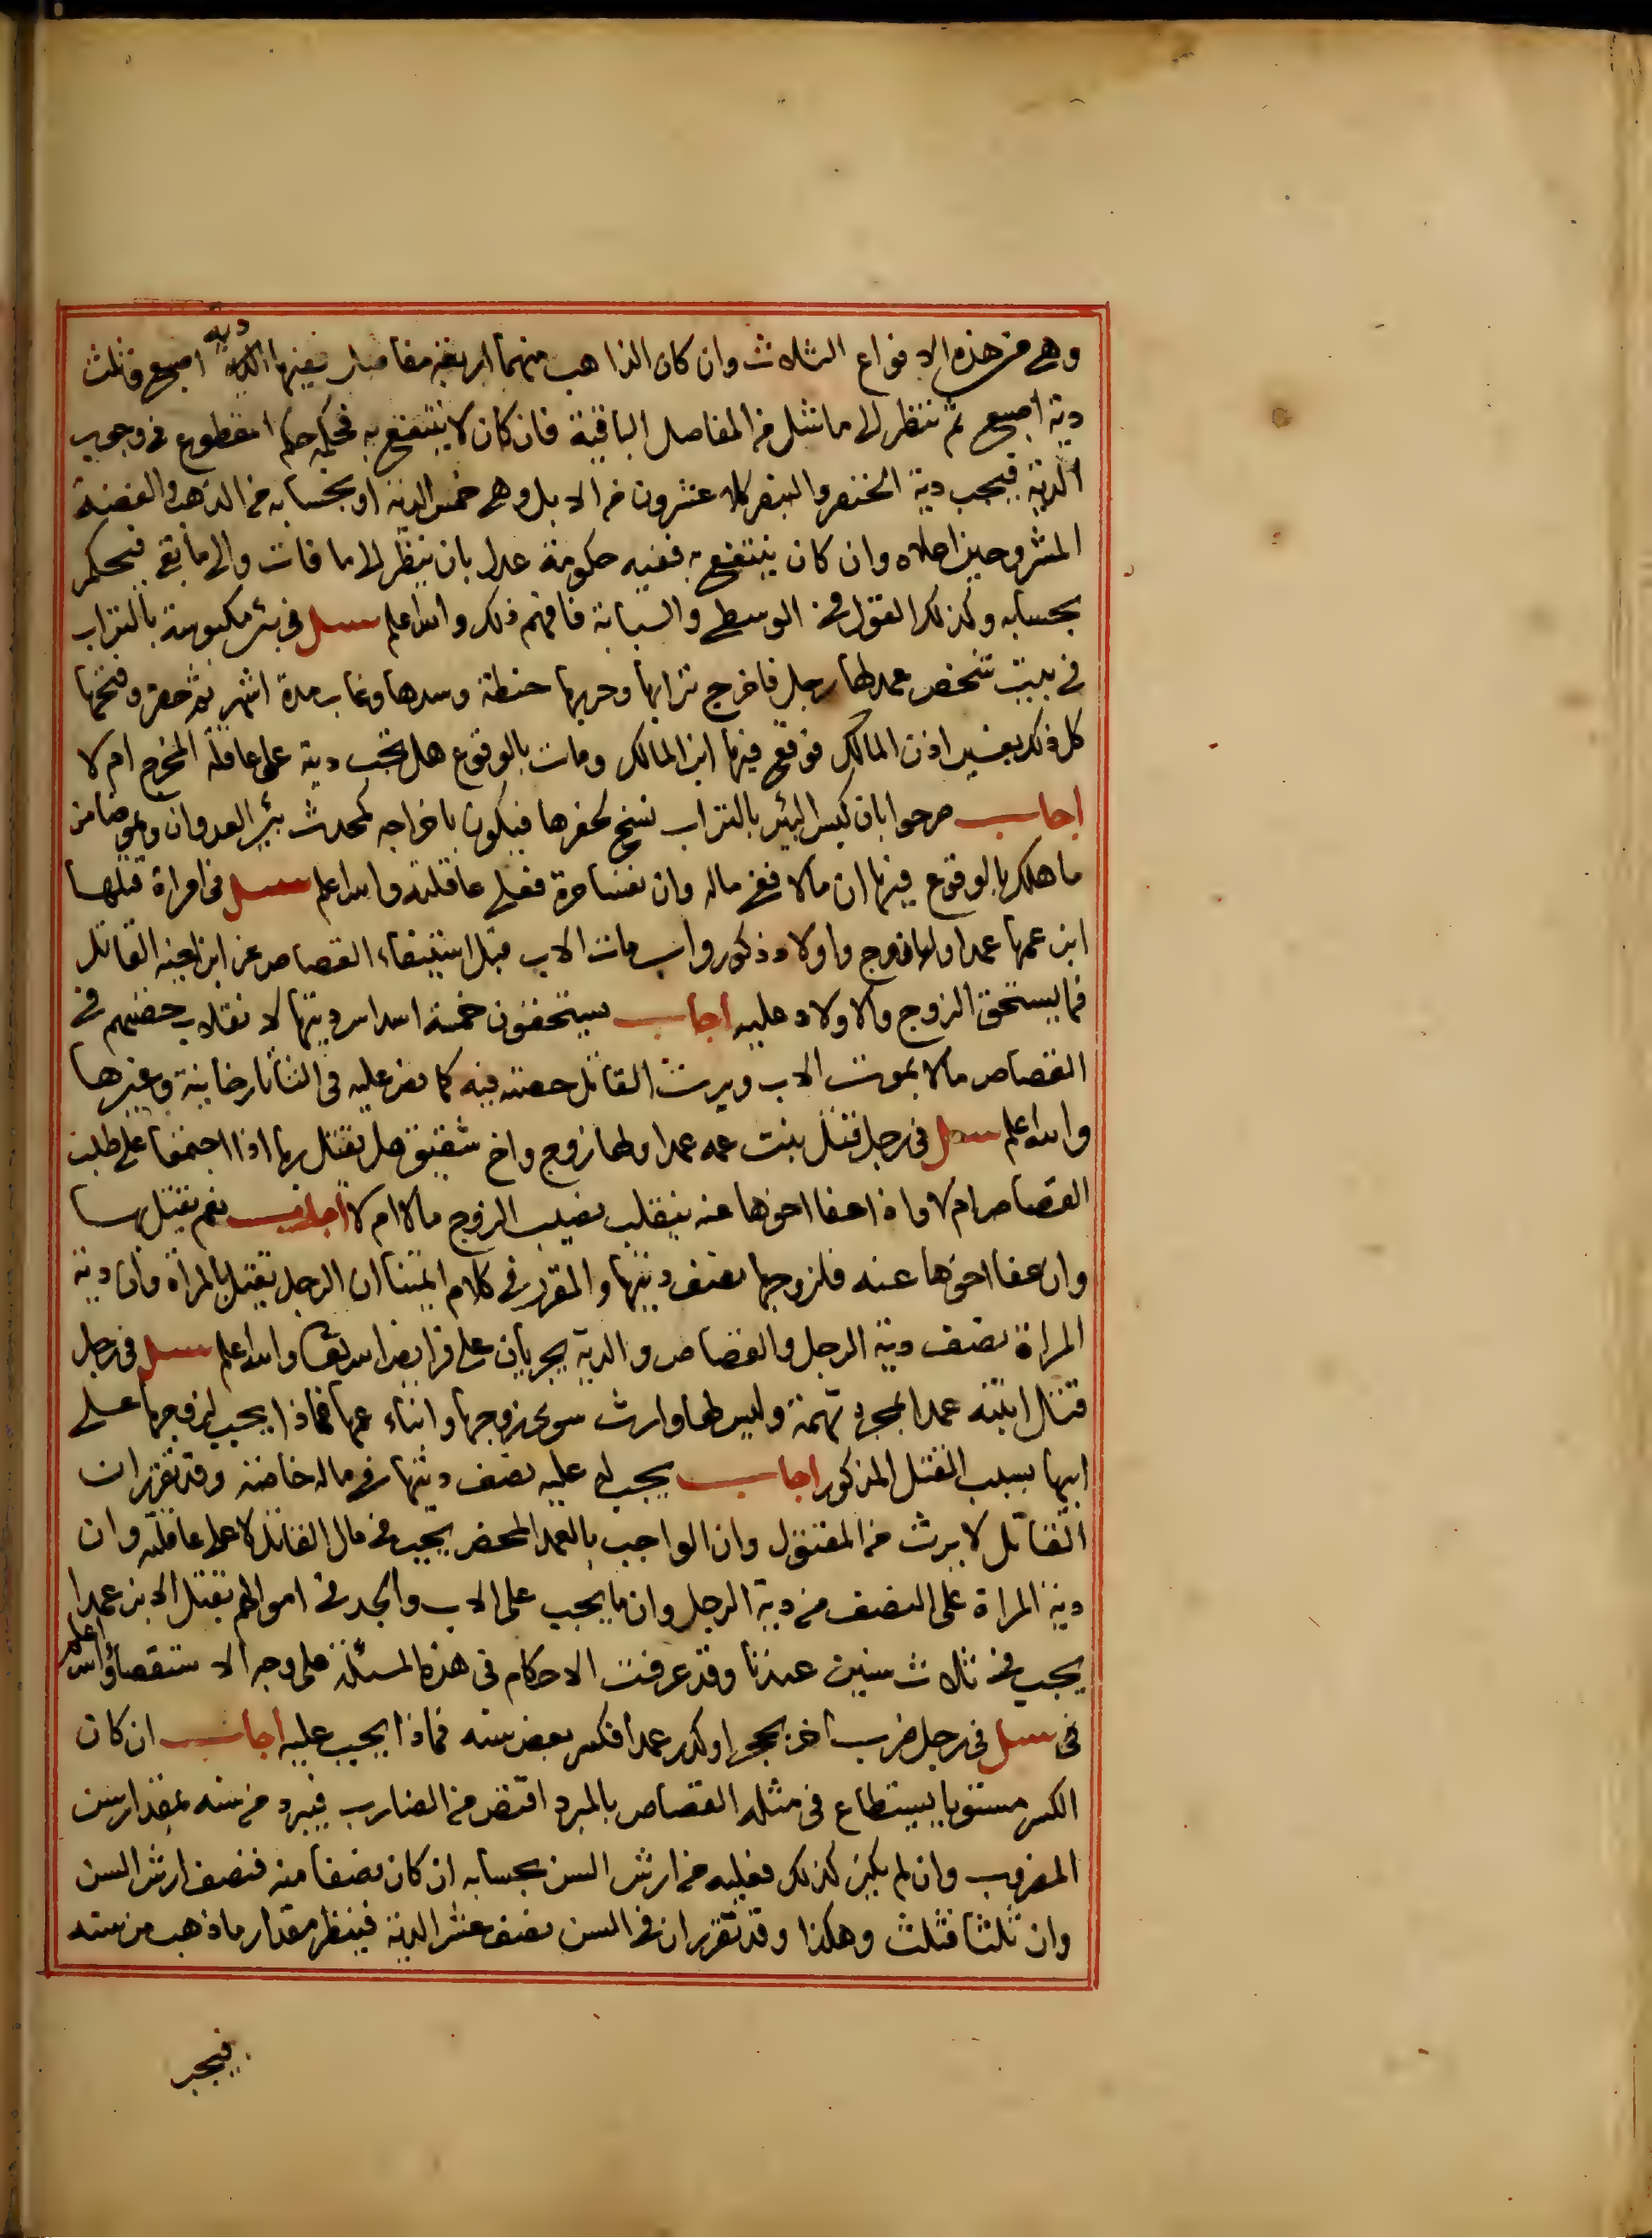 وهي من هذه الانواع الثلاث وان كان الذاهب منهما اربعة مفاصل ففيها دية اصبع وثلث
دية اصبع ثم تنظر الى ما شل من المفاصل الباقية فان كان لا ينتفع به فحكمه حكم المقطوع في وجوب
الدية فيجب دية الخنصر والبنصر كله عشرون من الابل وهي خمس الدية او بحسابه من الذهب والفضة
المشروحين اعلاه وان كان ينتفع به ففيه حكومة عدل بان ينظر الى ما فات والى ما بقى فيحكم
بحسابه وكذلك القول في الوسطى والسبابة فافهم ذلك والله اعلم سئل في بئر مكبوسة بالتراب
في بيت شخص عمد لها رجل فاخرج ترابها وحربها حنطة وسدها وغاب مدة اشهر ثم حضر وفتحها
كل ذلك بغير اذن المالك فوقع فيها ابن المالك ومات بالوقوع هل تجب دية على عاقلة المخرج ام لا
اجاب صرحوا بان كبس البئر بالتراب نسخ لحفرها فيكون باخراجه كمحدث بئر العدوان وهو ضامن
ما هلك بالوقوع فيها ان مالا ففي ماله وان نفسا حرة فعلى عاقلته والله اعلم سئل في امراة قتلها
ابن عمها عمدا ولها زوج واولاد ذكور واب مات الاب قبل استيفاء القصاص عن ابن اخيه القاتل
فما يستحق الزوج والاولاد عليه اجاب يستحقون خمسة اسداس ديتها لانقلاب حصتهم في
القصاص مالا بموت الاب ويرث القاتل حصته فيه كما نص عليه في التتارخانية وغيرها
والله اعلم سئل في رجل قتل بنت عمه عمدا ولها زوج واخ شقيق هل يقتل بها اذا اجتمعا على طلب
القصاص ام لا واذا عفا اخوها عنه ينقلب نصيب الزوج مالا ام لا اجاب نعم يقتل بها
وان عفا اخوها عنه فلزوجها نصف ديتها والمقرر في كلام ائمتنا ان الرجل يقتل بالمراة وان دية
المراة نصف دية الرجل والقصاص والدية يجريان على فرايض الله تعالى والله اعلم سئل في رجل
قتل ابنته عمدا بمجرد تهمة وليس لها وارث سوى زوجها وابناء عمها فماذا يجب لزوجها على
ابيها بسبب القتل المذكور اجاب يجب له عليه نصف ديتها في ماله خاصة وقد تقرر ان
القاتل لا يرث من المقتول وان الواجب بالعمد المحض يجب في مال القاتل لا على عاقلته وان
دية المراة على النصف من دية الرجل وان ما يجب على الاب والجد في اموالهم بقتل الابن عمدا
يجب في ثلاث سنين عندنا وقد عرفت الاحكام في هذه المسئلة على وجه الاستقصاء والله اعلم
في سئل في رجل ضرب آخر بحجر او كدر عمدا فكسر بعض سنه فماذا يجب عليه اجاب ان كان
الكسر مستويا يستطاع في مثله القصاص بالمبرد اقتص من الضارب فيبرد من سنه بمقدار سن
المضروب وان لم يكن كذلك فعليه من ارش السن بحسابه ان كان نصفا منه فنصف ارش السن
وان ثلثا فثلث وهكذا وقد تقرر ان في السن نصف عشر الدية فينظر مقدار ما ذهب من سنه
فيجب